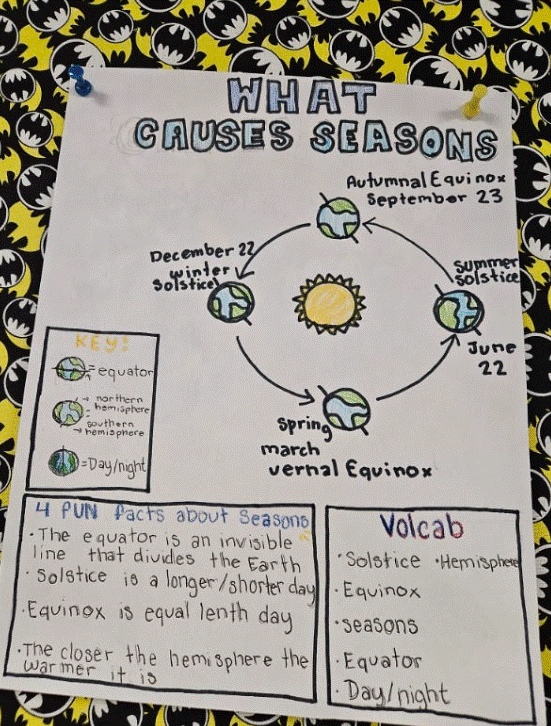 WHAT
CAUSES SEASONS
Autumnal Equinox
September 23
December 22
winter
Solstice
Summer
solstice
June
22
Spring
march
vernal Equinox
KEY!
=equator
→ northern
hemisphere
southern
→ hemisphere
=Day/night
4 FUN facts about Seasons
·The equator is an invisible
line that divides the Earth
·Solstice is a longer/shorter day
·Equinox is equal lenth day
·The closer the hemisphere the
warmer it is
Volcab
·Solstice ·Hemisphere
·Equinox
·seasons
·Equator
·Day/night